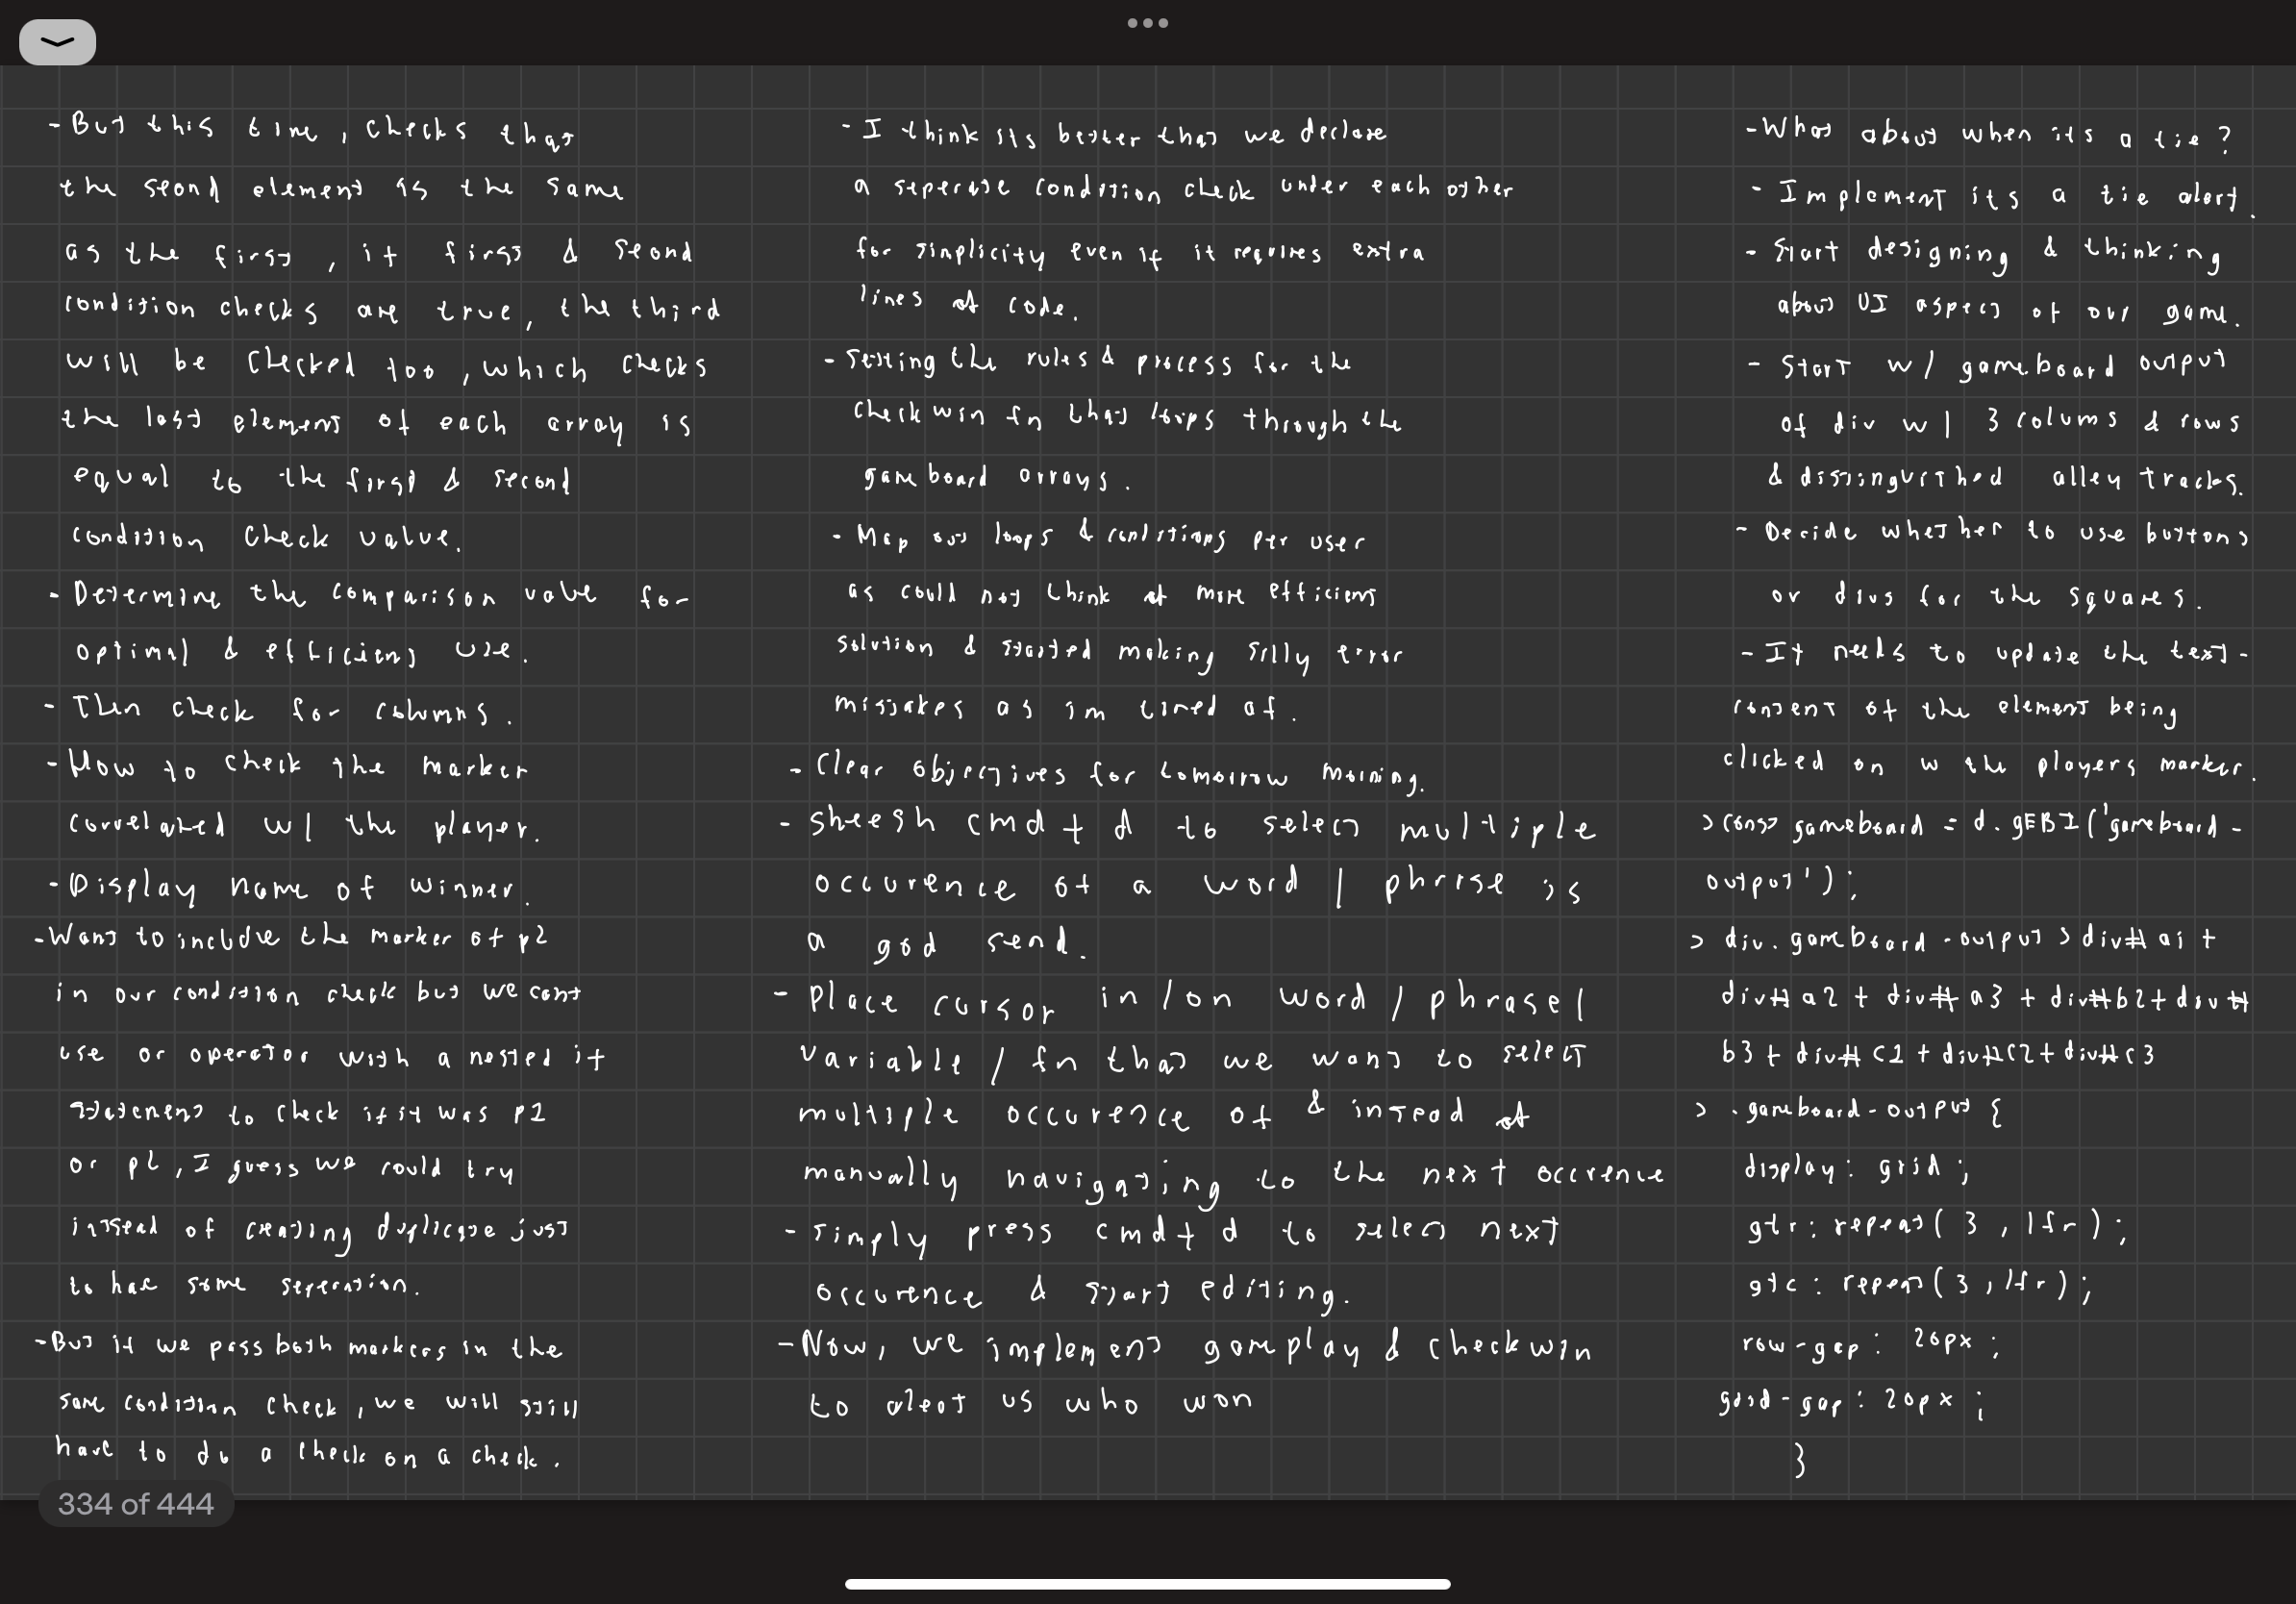 - But this time, checks that
the seond element is the same
as the first, if first & seond
condition checks are true, the third
will be checked too, which checks
the last element of each array is
equal to the first & second
condition check value.
- Determine the comparison value for
optimal & efficient use.
- Then check for columns.
- How to check the marker
correlated w/ the player.
- Display name of winner.
- Want to include the marker of p2
in our condition check but we cant
use or operator with a nested if
statement to check if it was p2
or p1, I guess we could try
instead of creating duplicate just
to have some seperation.
- But if we pass both markers in the
same condition check, we will still
have to do a check on a check.
- I think its better that we declare
a seperate condition check under each other
for simplicity even if it requires extra
lines of code.
- Setting the rules & process for the
checkwin fn that loops through the
gameboard arrays.
- Map out loops & conditions per user
as could not think of more efficient
solution & started making silly error
mistakes as im tired af.
- Clear objectives for tomorrow morning.
- Sheesh cmd + d to select multiple
occurence of a word / phrase is
a god send.
- Place cursor in/on word / phrase /
variable / fn that we want to select
multiple occurence of & instead of
manually navigating to the next occrence
- simply press cmd + d to select next
occurence & start editing.
- Now, we implement gameplay & checkwin
to alert us who won
- What about when its a tie?
- Implement its a tie alert.
- Start designing & thinking
about UI aspect of our game.
- Start w/ gameboard output
of div w/ 3 colums & rows
& distinguished alley tracks.
- Decide whether to use buttons
or divs for the squares.
- It needs to update the text-
content of the element being
clicked on w the players marker.
> const gameboard = d.gEBI('gameboard-
output');
> div.gameboard-output > div#a1 +
div#a2 + div#a3 + div#b2 + div#
b3 + div#c1 + div#c2 + div#c3
> .gameboard-output {
display: grid;
gtr: repeat(3, 1fr);
gtc: repeat(3, 1fr);
row-gap: 20px;
grid-gap: 20px;
}
334 of 444